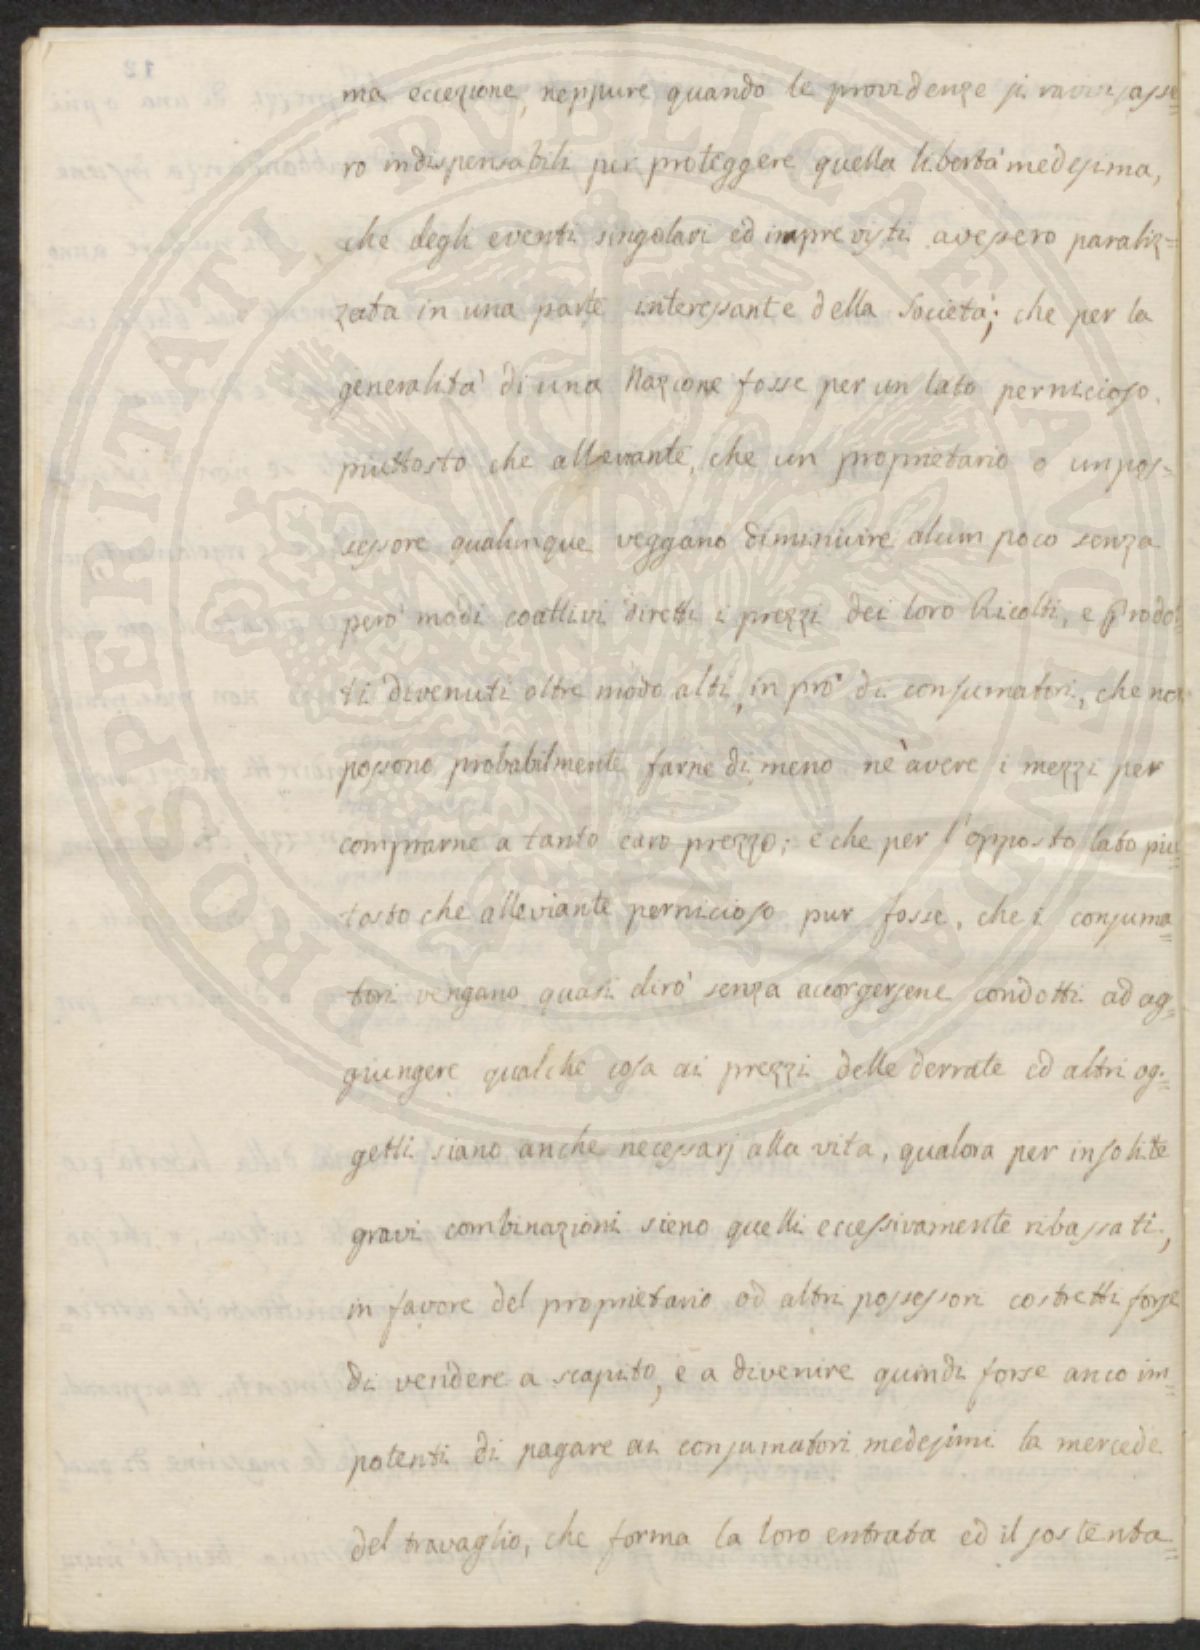 ma eccezione, neppure quando le providenze si ravvisasse=
ro indispensabili per proteggere quella libertà medesima,
che degli eventi singolari ed imprevisti avessero paraliz=
zata in una parte interessante della Società; che per la
generalità di una Nazione fosse per un lato pernicioso
piuttosto che alleviante, che un proprietario o un pos=
sessore qualunque veggano diminuire alcun poco senza
però modi coattivi diretti i prezzi dei loro Ricolti, e Prodot
ti divenuti oltre modo alti, in prò di consumatori, che non
possono probabilmente farne di meno nè avere i mezzi per
comprarne a tanto caro prezzo; e che per l'opposto lato piu=
tosto che alleviante pernicioso pur fosse, che i consuma=
tori vengano quasi dirò senza accorgersene condotti ad ag=
giungere qualche cosa ai prezzi delle derrate ed altri og=
getti siano anche necessarj alla vita, qualora per insolite
gravi combinazioni sieno quelli eccessivamente ribassati,
in favore del proprietario od altri possessori costretti forse
di vendere a scapito, e a divenire quindi forse anco im=
potenti di pagare ai consumatori medesimi la mercede
del travaglio, che forma la loro entrata ed il sostenta=
12
PROSPERITATI PUBLICAE AUGENDAE